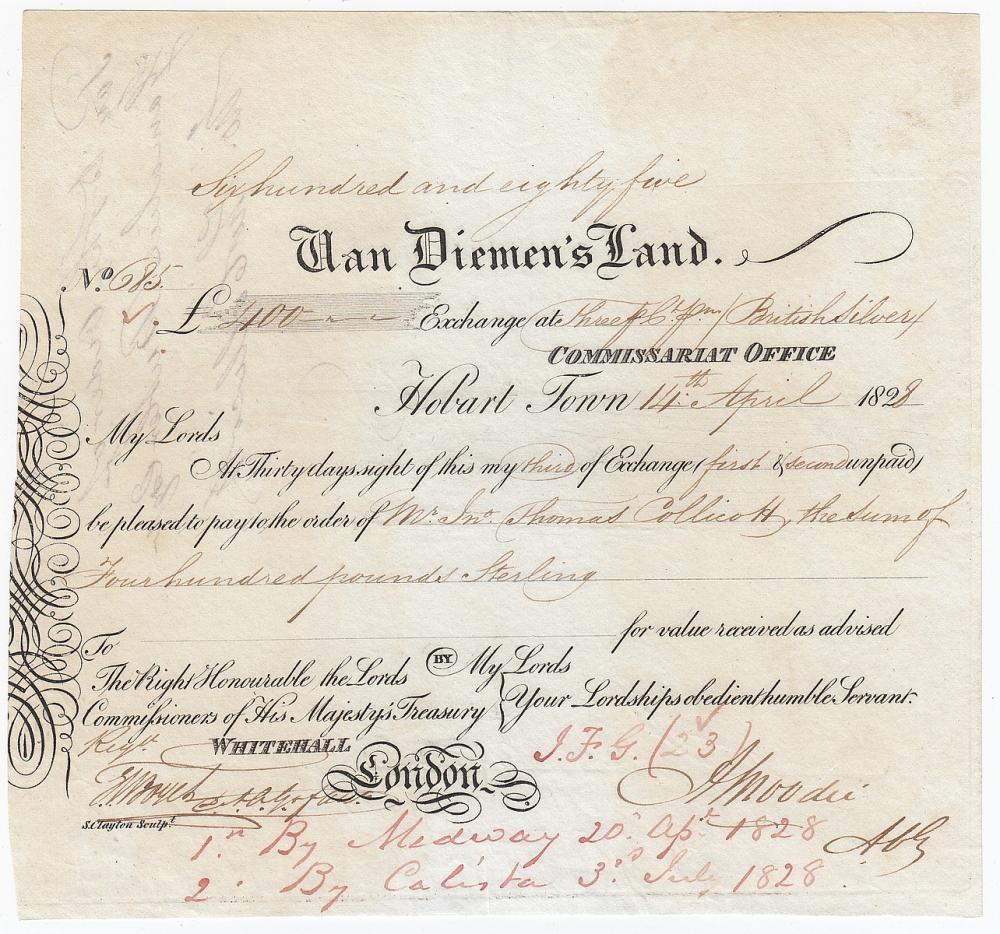 Six hundred and eighty five
Van Diemen's Land.
No. 685.
£ 400 Exchange at Three p Ct Pm (British Silver)
COMMISSARIAT OFFICE
Hobart Town 14th April 1828
My Lords
At Thirty days sight of this my third of Exchange (first & second unpaid)
be pleased to pay to the order of Mr Jno Thomas Collicott, the sum of
Four hundred pounds Sterling
for value received as advised
To
The Right Honourable the Lords BY My Lords
Commissioners of His Majesty's Treasury Your Lordships obedient humble Servant.
WHITEHALL
London
J.F.G. (23)
A Moodie
S. Clayton Sculpt.
1st By Medway 20 Apl 1828
2d By Calista 3d July 1828